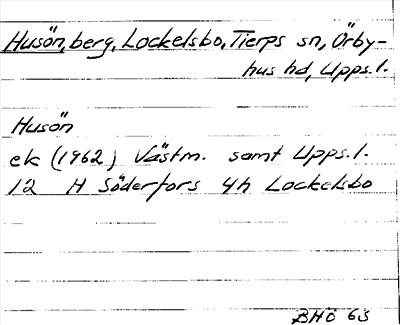 Husön, berg, Lockelsbo, Tierps sn, Örby-
hus hd, Upps.l.
Husön
ek (1962) Västm. samt Upps.l.
12 H Söderfors 4h Lockelsbo
BHÖ 63